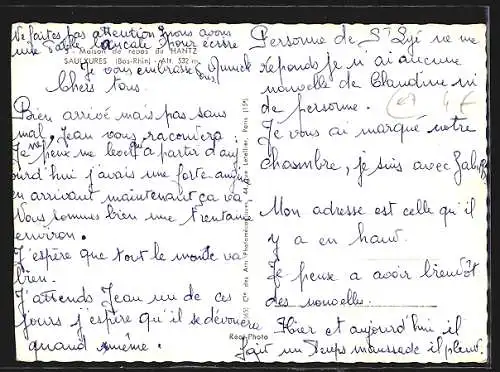 Ne faites pas attention nous avons
une table bancale pour écrire
Maison de repos du HANTZ
SAULXURES (Bas-Rhin) - Alt. 532 m.
Je vous embrasse
tous.
Chers tous.
Bien arrivé mais pas sans
mal, Jean vous racontera.
Je ne peux me lever qu'a partir d'auj
ourd'hui j'avais une forte angine
en arrivant maintenant ça va
Nous sommes bien une trentaine
environ.
J'espère que tout le monde va
bien.
J'attends Jean un de ces
jours j'espère qu'il se dévouera
quand même.
Réal-Photo
Personne de St Lyé ne me
reponds je n'ai aucune
nouvelle de Claudine ni
de personne.
67 4€
Je vous ai marqué notre
chasmbre, je suis avec
Mon adresse est celle qu'il
y a en haut.
Je pense a avoir bientôt
des nouvelles.
Hier et aujourd'hui il
fait un temps maussade il pleut.